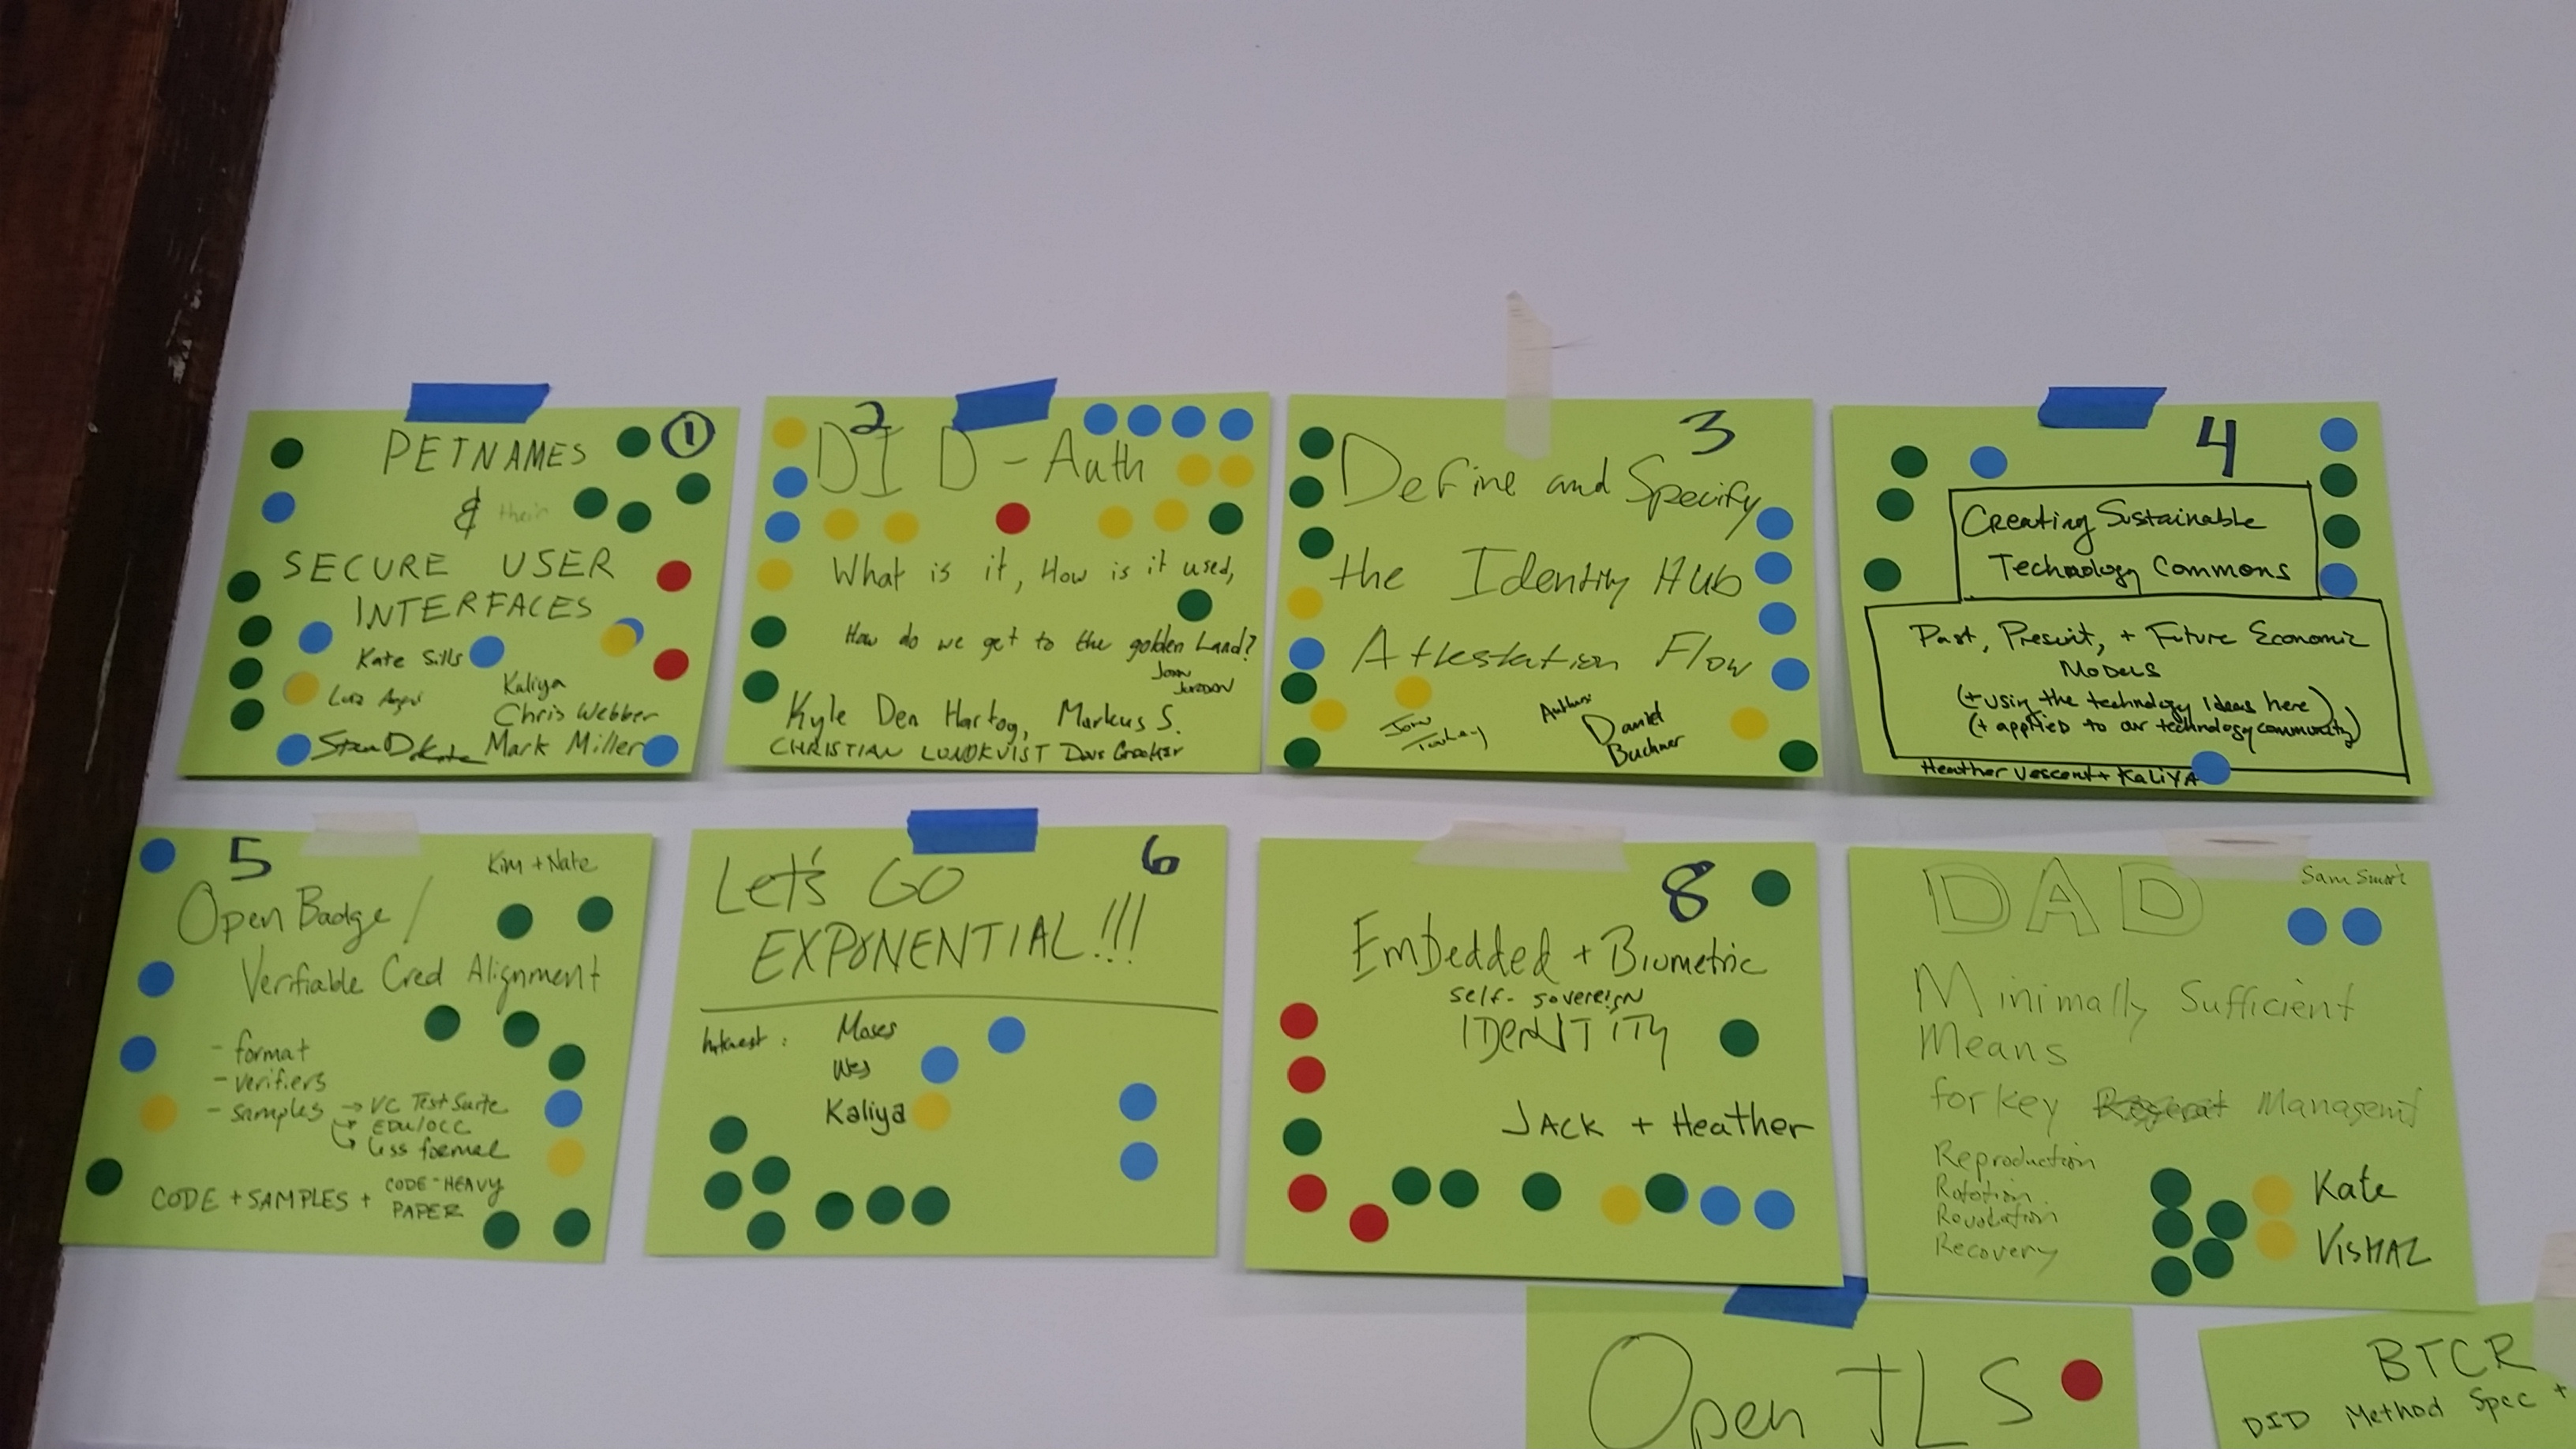 1
PETNAMES
& their
SECURE USER
INTERFACES
Kate Sills
Kaliya
Chris Webber
Mark Miller
2
DID-Auth
What is it, How is it used,
How do we get to the golden Land?
John
Jordan
Kyle Den Hartog, Markus S.
CHRISTIAN LUNDKVIST Dave Crocker
3
Define and Specify
the Identity Hub
Attestation Flow
Authors:
Daniel
Buchner
4
Creating Sustainable
Technology Commons
Past, Present, + Future Economic
Models
(+ using the technology ideas here)
(+ applied to our technology community)
Heather Vescent + KALIYA
5
Kim + Nate
Open Badge /
Verifiable Cred Alignment
- format
- verifiers
- samples → VC Test Suite
→ EDU/OCC
→ less formal
CODE + SAMPLES + CODE-HEAVY
PAPER
6
Let's GO
EXPONENTIAL!!!
Interest: Moses
Wes
Kaliya
8
Embedded + Biometric
self-sovereign
IDENTITY
JACK + Heather
DAD
Sam
Minimally Sufficient
Means
for key Management
Reproduction
Rotation
Revocation
Recovery
Kate
VISHAL
Open TLS
BTCR
DID Method Spec +